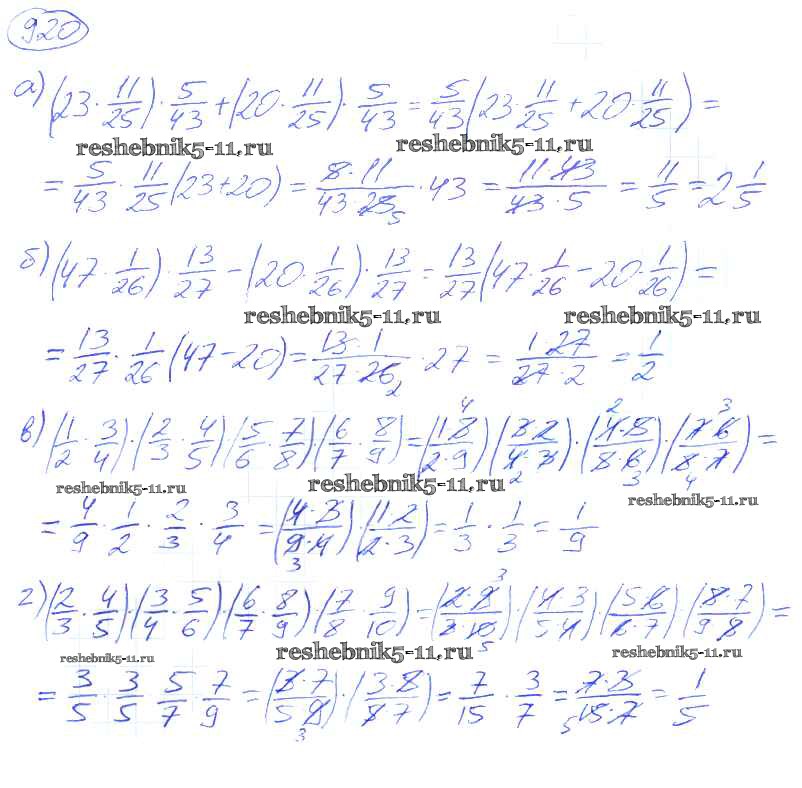 920
а) (23 · 11/25) · 5/43 + (20 · 11/25) · 5/43 = 5/43 (23 · 11/25 + 20 · 11/25) =
reshebnik5-11.ru reshebnik5-11.ru
= 5/43 · 11/25 (23+20) = 5·11/43·25 5 · 43 = 11·43/43·5 = 11/5 = 2 1/5
б) (47 · 1/26) · 13/27 − (20 · 1/26) · 13/27 = 13/27 (47 · 1/26 − 20 · 1/26) =
reshebnik5-11.ru reshebnik5-11.ru
= 13/27 · 1/26 (47−20) = 13·1/27·26 2 · 27 = 1·27/27·2 = 1/2
в) (1/2 · 3/4) · (2/3 · 4/5) (5/6 · 7/8) (6/7 · 8/9) = (1·8 4/2·9) (3·2/4·3 2) · (4·5 2/8·6 3) · (7·6 3/8·7 4) =
reshebnik5-11.ru reshebnik5-11.ru reshebnik5-11.ru
= 4/9 · 1/2 · 2/3 · 3/4 = (4·3/9·4 3) (1·2/2·3) = 1/3 · 1/3 = 1/9
г) (2/3 · 4/5) · (3/4 · 5/6) · (6/7 · 8/9) (7/8 · 9/10) = (2·9 3/3·10 5) · (4·3/5·4) · (5·6/6·7) · (8·7/9·8) =
reshebnik5-11.ru reshebnik5-11.ru reshebnik5-11.ru
= 3/5 · 3/5 · 5/7 · 7/9 = (3·7/5·9 3) · (3·5/5·7) = 7/15 · 3/7 = 7·3/15·7 5 = 1/5